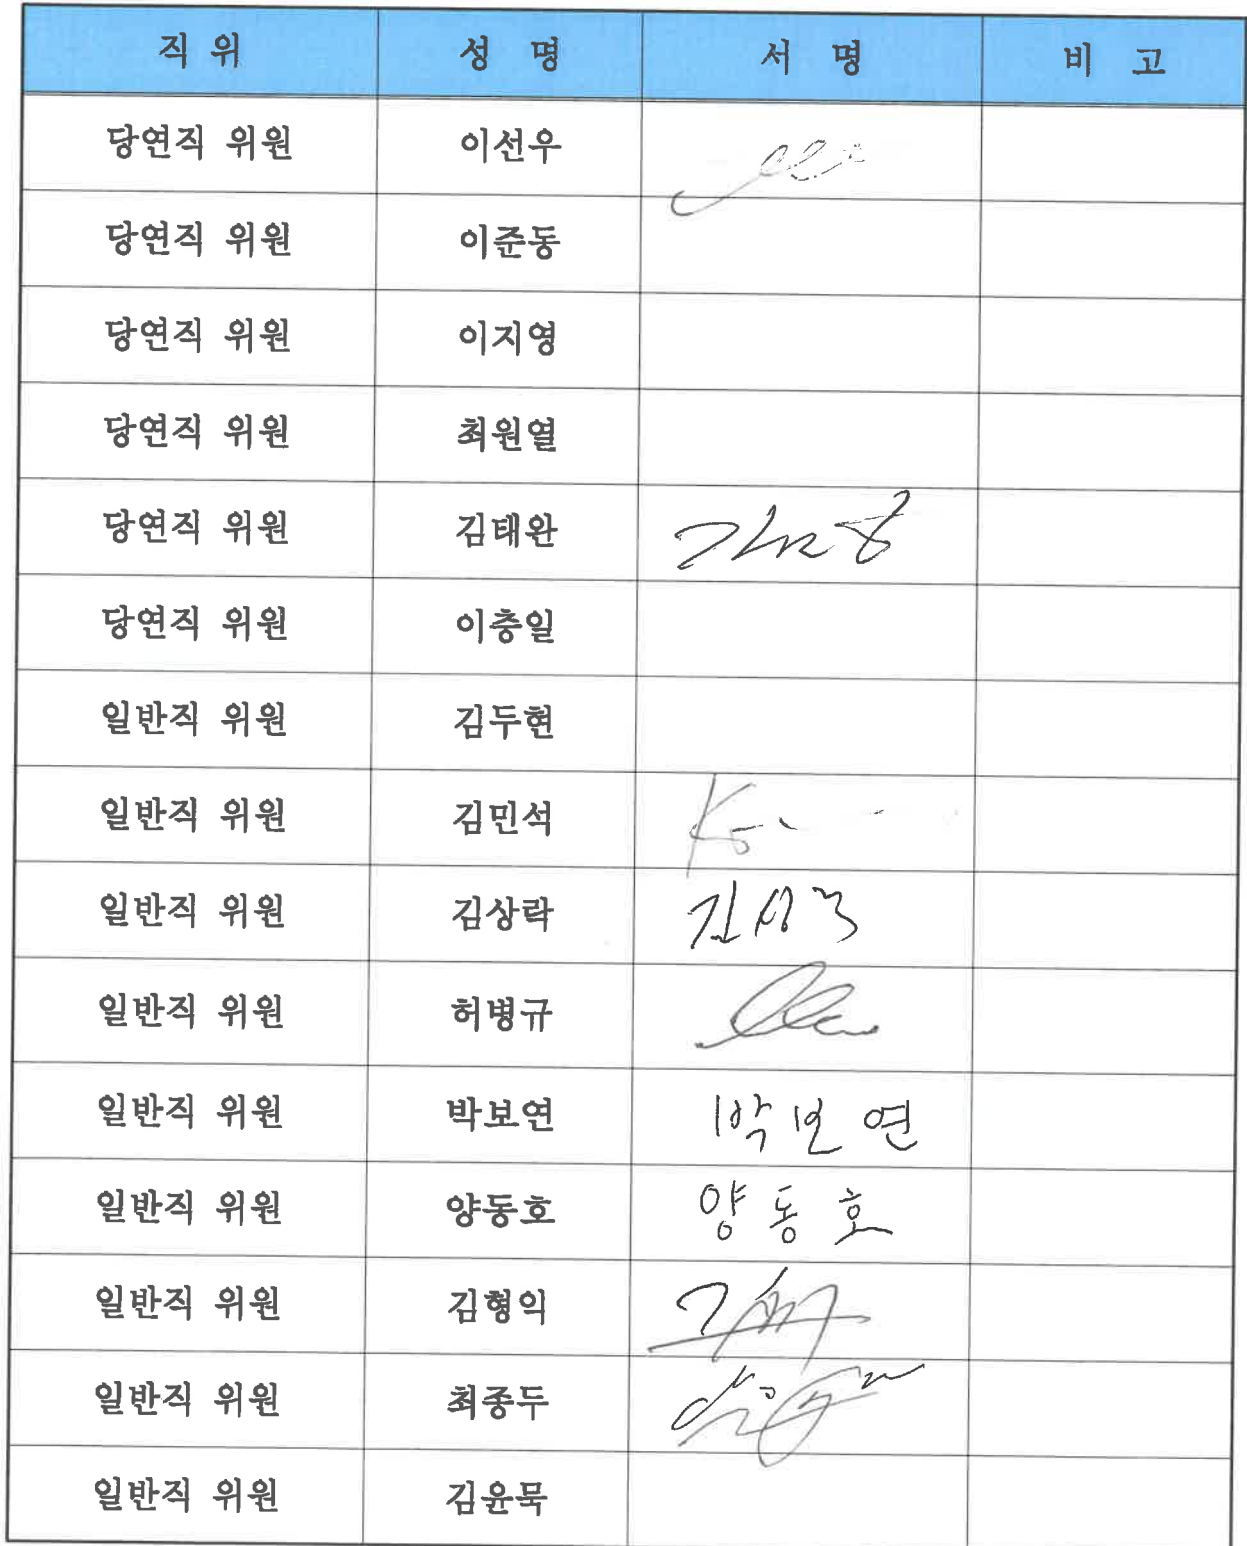 직 위 성 명 서 명 비 고
당연직 위원 이선우
당연직 위원 이준동
당연직 위원 이지영
당연직 위원 최원열
당연직 위원 김태완
당연직 위원 이충일
일반직 위원 김두현
일반직 위원 김민석
일반직 위원 김상락
일반직 위원 허병규
일반직 위원 박보연 박보연
일반직 위원 양동호 양동호
일반직 위원 김형익
일반직 위원 최종두
일반직 위원 김윤묵